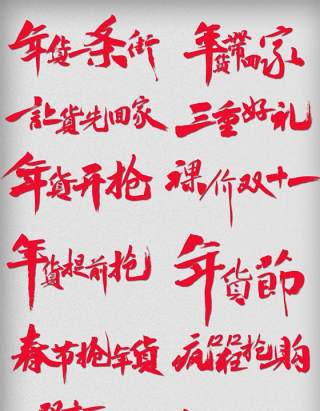 年货一条街
年货带回家
讓货先回家
三重好礼
年货开抢
裸价双十一
年货提前抢
年货節
春节抢年货
疯狂抢购